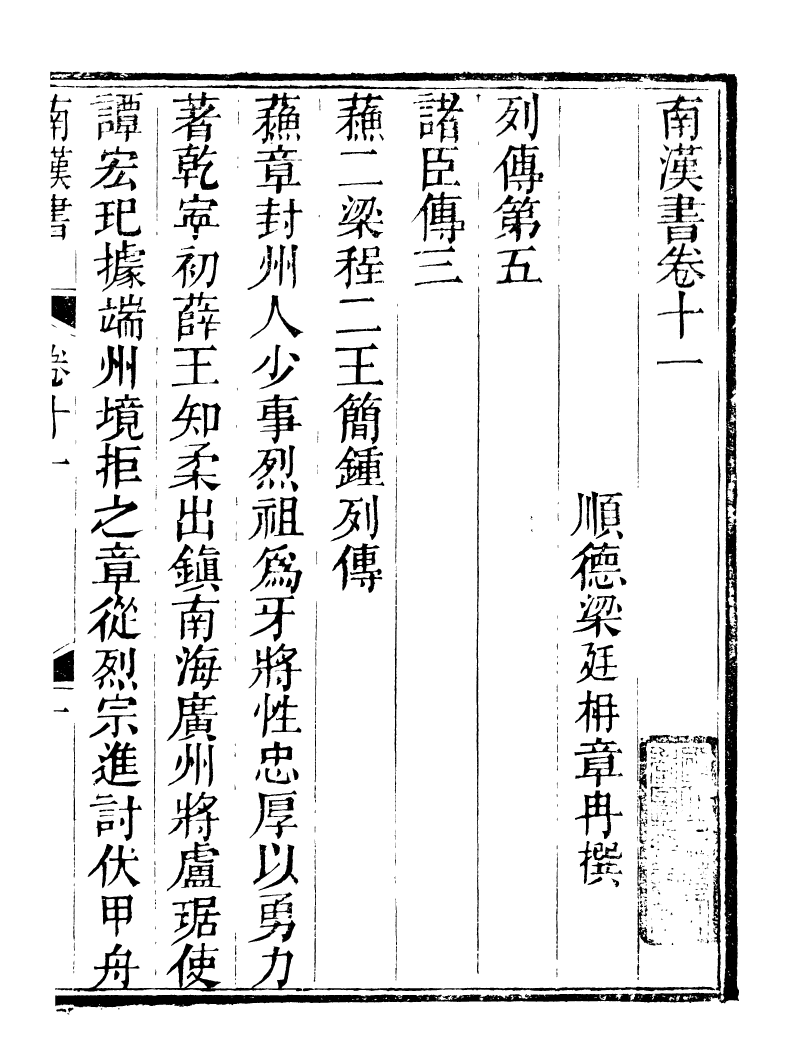 南漢書卷十一
順德梁廷枏章冉撰
列傳第五
諸臣傳三
蘓二梁程二王簡鍾列傳
蘓章封州人少事烈祖爲牙將性忠厚以勇力
著乾寜初薛王知柔出鎭南海廣州將盧琚使
譚宏玘據端州境拒之章從烈宗進討伏甲舟
南漢書 卷十一 一